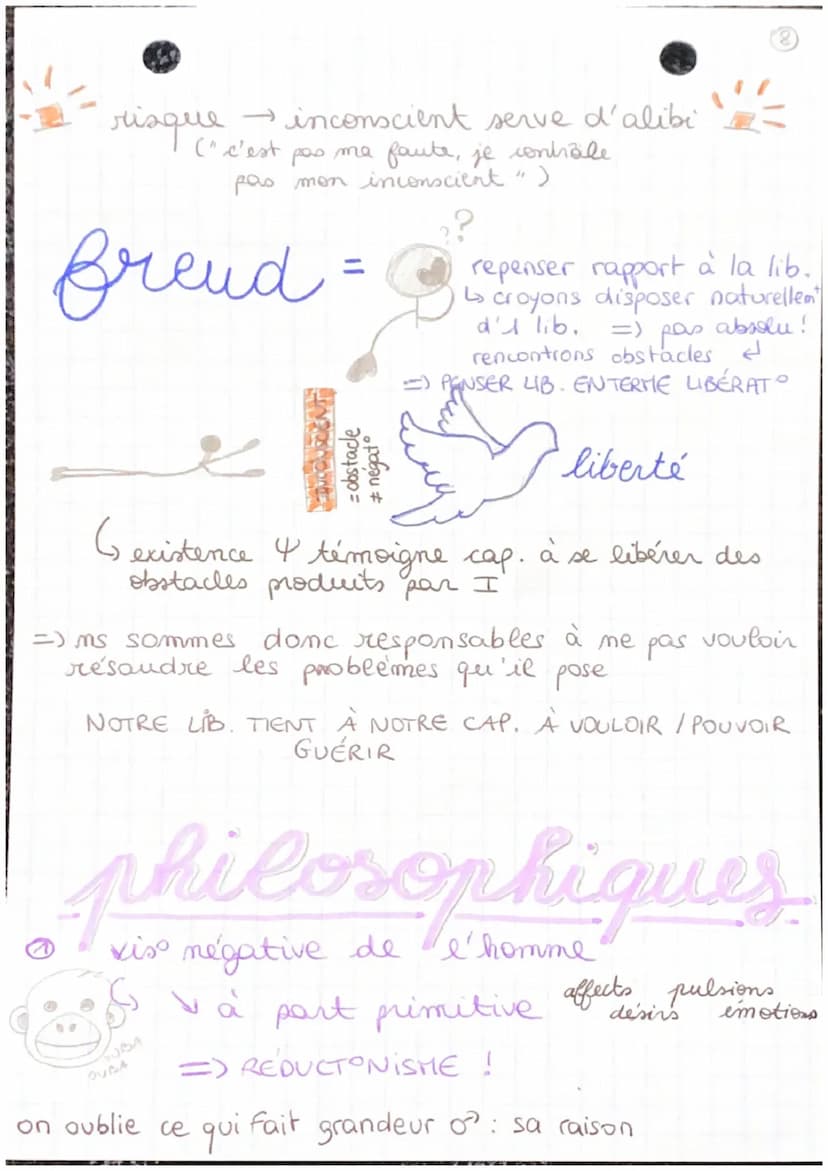 8
risque → inconscient serve d'alibi
("c'est pas ma faute, je contrôle
pas mon inconscient")
Freud =
??
repenser rapport à la lib.
↳ croyons disposer naturellem^t
d'1 lib. => pas absolu!
rencontrons obstacles ↵
=> PENSER LIB. EN TERME LIBÉRAT°
INCONSCIENT
= obstacle
≠ négat°
liberté
↳ existence Ψ témoigne cap. à se libérer des
obstacles produits par I
=> ns sommes donc responsables à ne pas vouloir
résoudre les problèmes qu'il pose
NOTRE LIB. TIENT À NOTRE CAP. À VOULOIR / POUVOIR
GUÉRIR
philosophiques
① vis° négative de l'homme
↳ ↘ à part primitive
affects pulsions
désirs émotions
OUBA
OUBA
=> RÉDUCT°NISME !
on oublie ce qui fait grandeur ♂ : sa raison